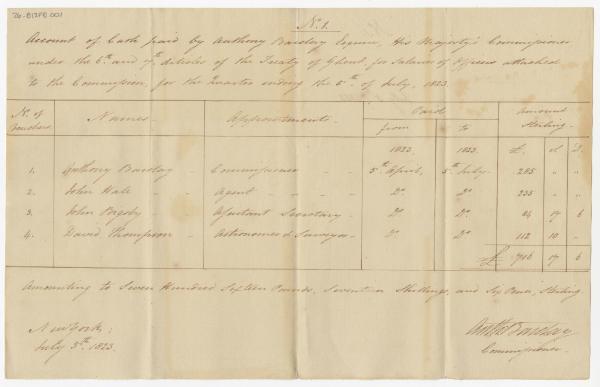 26-B12FB.001
No. 1.
Account of Cash paid by Anthony Barclay Esquire, His Majesty's Commissioner
under the 6th and 7th Articles of the Treaty of Ghent, for Salaries of Officers attached
to the Commission, for the Quarter ending the 5th of July, 1823.
No. of Vouchers Names Appointments Paid from to Amount Sterling
1823. 1823. £. s d.
1. Anthony Barclay Commissioner 5th April, 5th July 285 " "
2. John Hale Agent Do Do 235 " "
3. John Bigsby Assistant Secretary Do Do 84 6
4. David Thompson Astronomer & Surveyor Do Do 112 10 "
£ 716 17 6
Amounting to Seven Hundred Sixteen Pounds, Seventeen Shillings, and Six Pence, Sterling.
New York;
July 5th 1823.
Anth: Barclay
Commissioner.